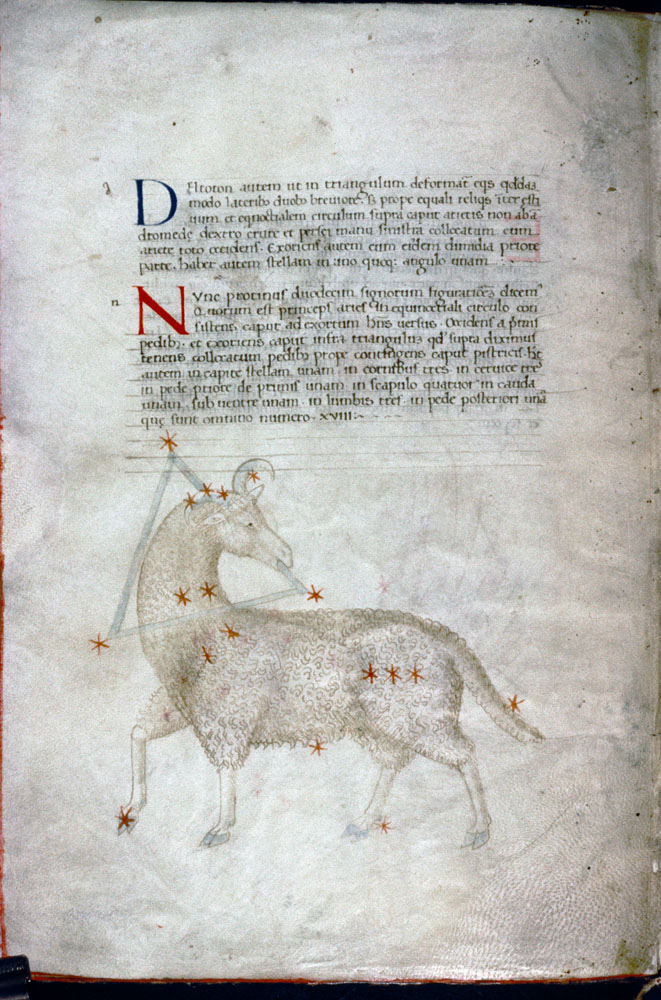 d
DEltoton autem ut in triangulum deformat̄ eqs qđdā
modo lateribɔ duobɔ brevioreꝫ B prope equali reliqs īter esti
uum et equinoctialem circulum supra caput arietis non
dromedę dextro crure et persei manu sinistra collocatum cum
ariete toto occidens. Exoriens autem cum eidem dimidia priore
parte. habet autem stellam in uno quoqꝫ angulo unam
n
NVnc protinus duodecim signorum figurationēs dicemꝰ
Quorum est princeps aries in equinoctiali circulo con
sistens caput ad exortum hn̄s versus. Occidens a primis
pedibꝫ. et exoriens caput infra triangulū qđ supra diximus
tenens collocatum pedibꝫ prope contingens caput pistricis. hic
autem in capite stellam unam. in cornibus tres. in cervice tres
in pede priore de primis unam. in scapulo quatuor in cauda
unam. sub ventre unam. in lumbis tres. in pede posteriori unā
quę sunt omnino numero. XVIII.